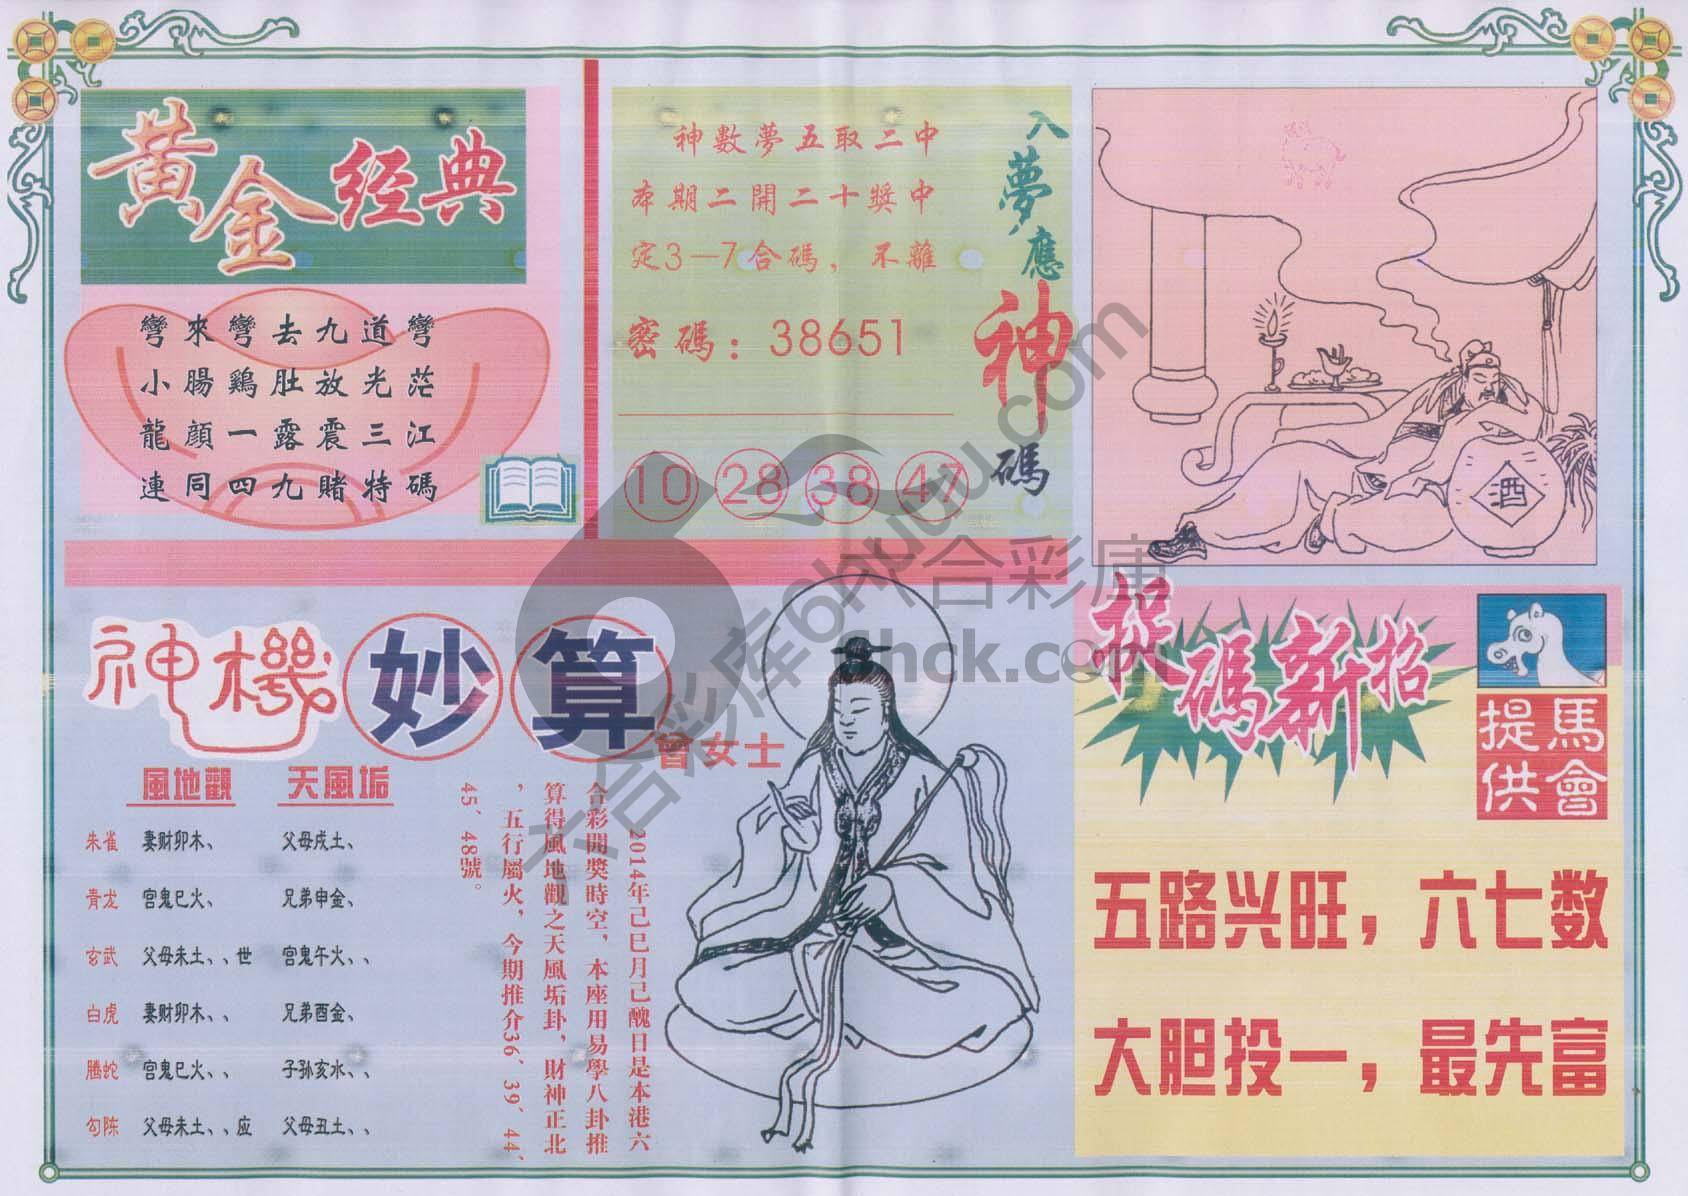 黄金经典
彎來彎去九道彎
小腸鷄肚放光茫
龍顔一露震三江
連同四九賭特碼
神數夢五取二中
本期二開二十獎中
定3—7合碼，不離
密碼：38651
10 28 38 47
入夢應神碼
酒
神機妙算
曾女士
風地觀 天風垢
朱雀 妻财卯木、 父母戌土、
青龙 宫鬼巳火、 兄弟申金、
玄武 父母未土、、世 宫鬼午火、、
白虎 妻财卯木、、 兄弟酉金、
腾蛇 宫鬼巳火、、 子孙亥水、、
勾陈 父母未土、、应 父母丑土、、
2014年己巳月己醜日是本港六
合彩開獎時空，本座用易學八卦推
算得風地觀之天風垢卦，財神正北
，五行屬火，今期推介36、39、44、
45、48號。
捉碼新招
馬會提供
五路兴旺，六七数
大胆投一，最先富
六合彩库6hkuku.com
六合彩庫